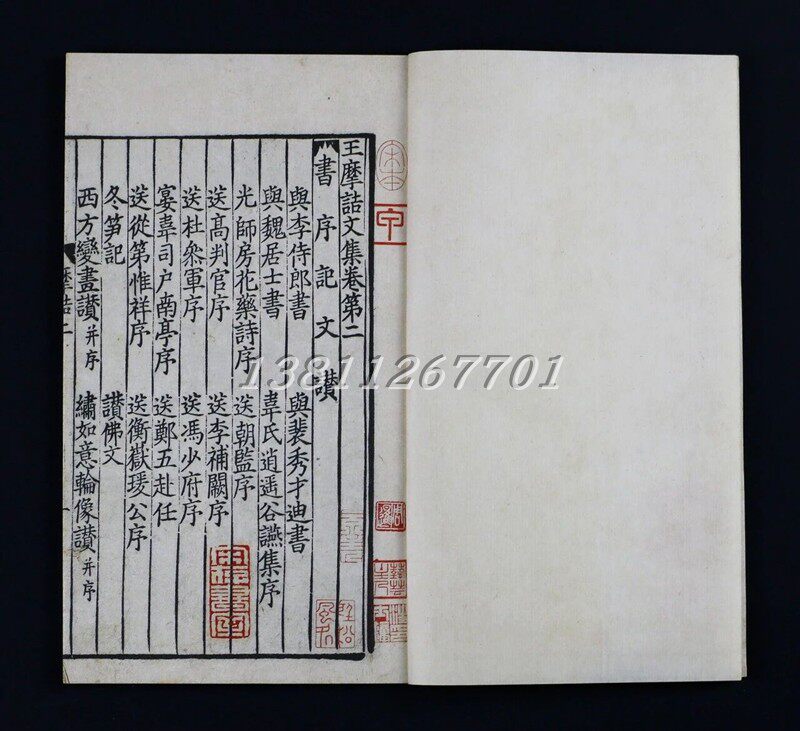 王摩詰文集卷第二
書 序 記 文 讃
與李侍郎書 與裴秀才迪書
與魏居士書 韋氏逍遥谷讌集序
光師房花藥詩序 送朝監序
送高判官序 送李補闕序
送杜叅軍序 送馮少府序
宴韋司户南亭序 送鄭五赴任
送從弟惟祥序 送衡嶽瑗公序
冬筍記 讃佛文
西方變畫讃并序 繡如意輪像讃并序
摩詰二
13811267701